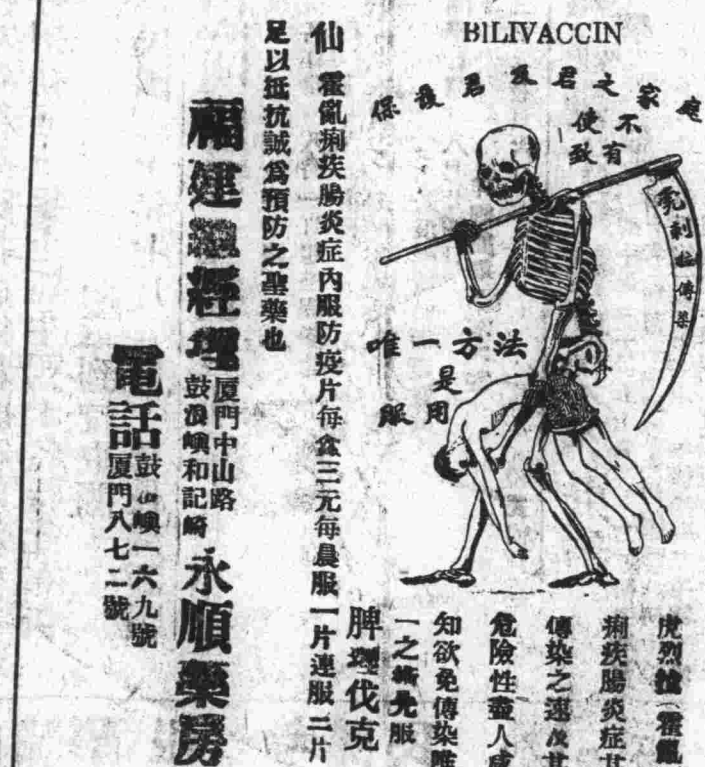 BILIVACCIN
保護君及君之家庭
使不
致有
虎列拉傳染
唯一方法
是
服用
虎烈拉(霍亂
痢疾腸炎症甘
傳染之速及其
危險性盡人咸
知欲免傳染唯
一之 服
脾 伐克
仙 霍亂痢疾腸炎症內服防疫片每盒三元每晨服一片連服二片
足以抵抗誠為預防之聖藥也
福建總經理
厦門中山路
鼓浪嶼和記崎
永順藥房
電話
鼓浪嶼一六九號
厦門八七二號